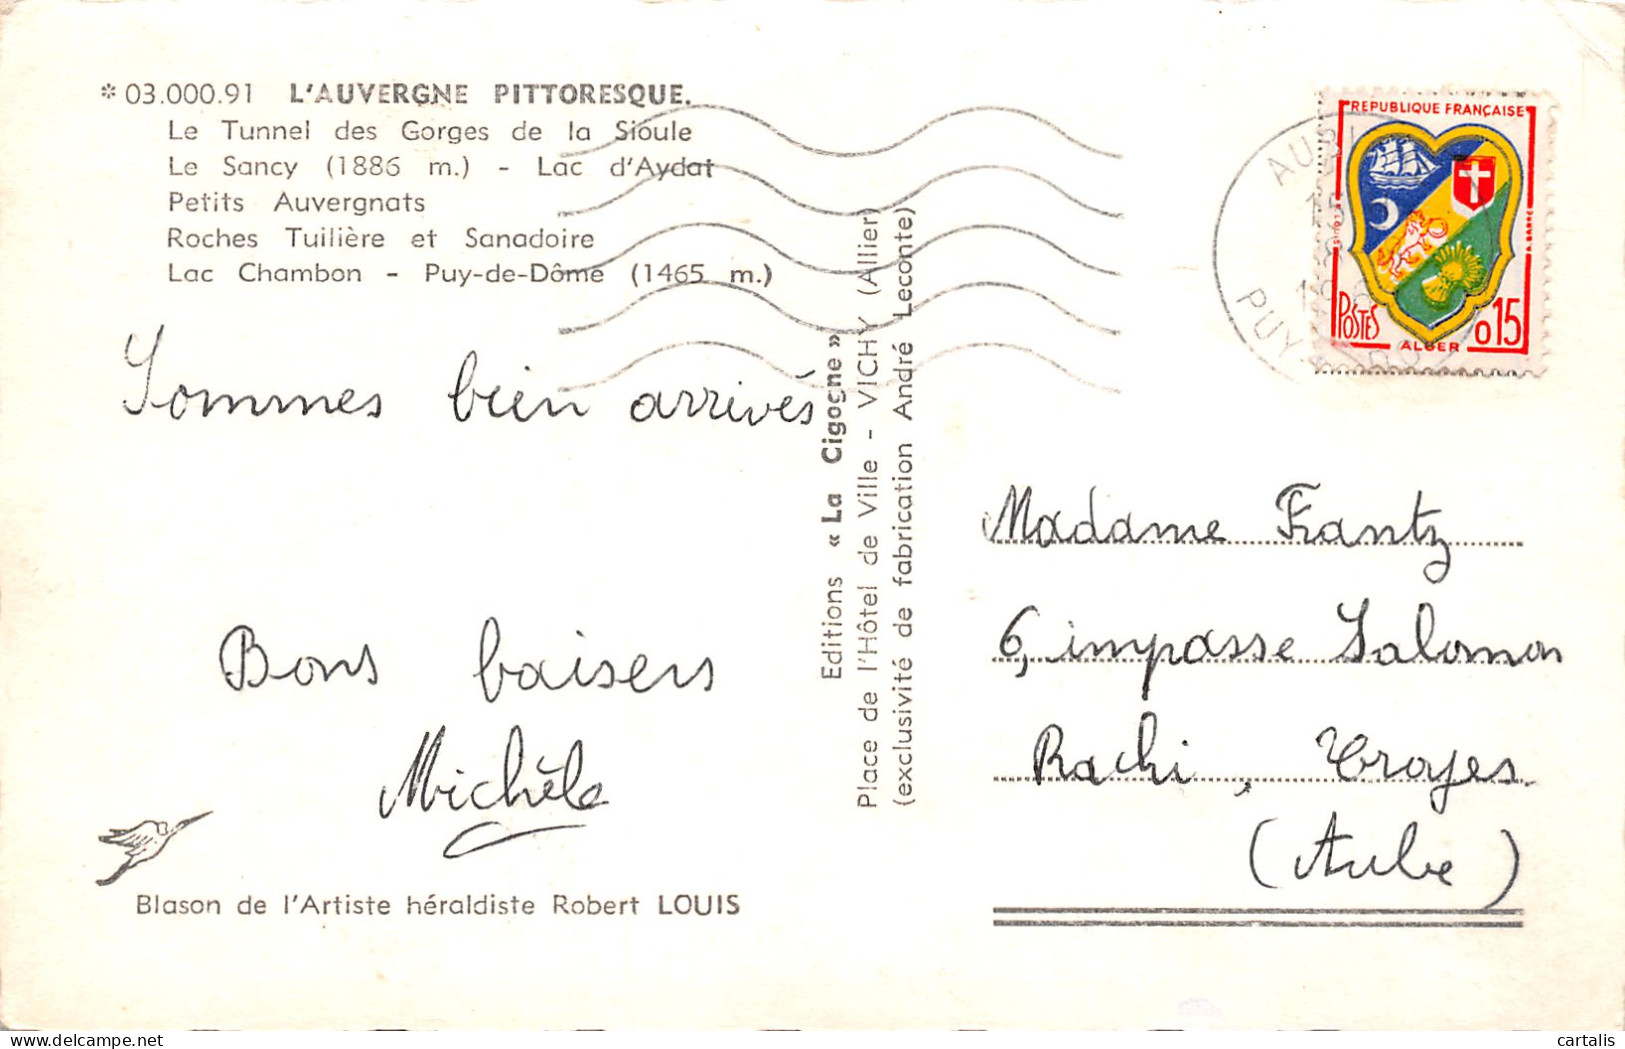 * 03.000.91 L'AUVERGNE PITTORESQUE.
Le Tunnel des Gorges de la Sioule
Le Sancy (1886 m.) - Lac d'Aydat
Petits Auvergnats
Roches Tuilière et Sanadoire
Lac Chambon - Puy-de-Dôme (1465 m.)
Sommes bien arrivés
Bons baisers
Michèle
Blason de l'Artiste héraldiste Robert LOUIS
Editions « La Cigogne »
Place de l'Hôtel de Ville - VICHY (Allier)
(exclusivité de fabrication André Leconte)
REPUBLIQUE FRANÇAISE
POSTES
ALGER
0,15
15
PUY
Madame Frantz
6, impasse Salomon
Rachi, Troyes
(Aube)
cartalis